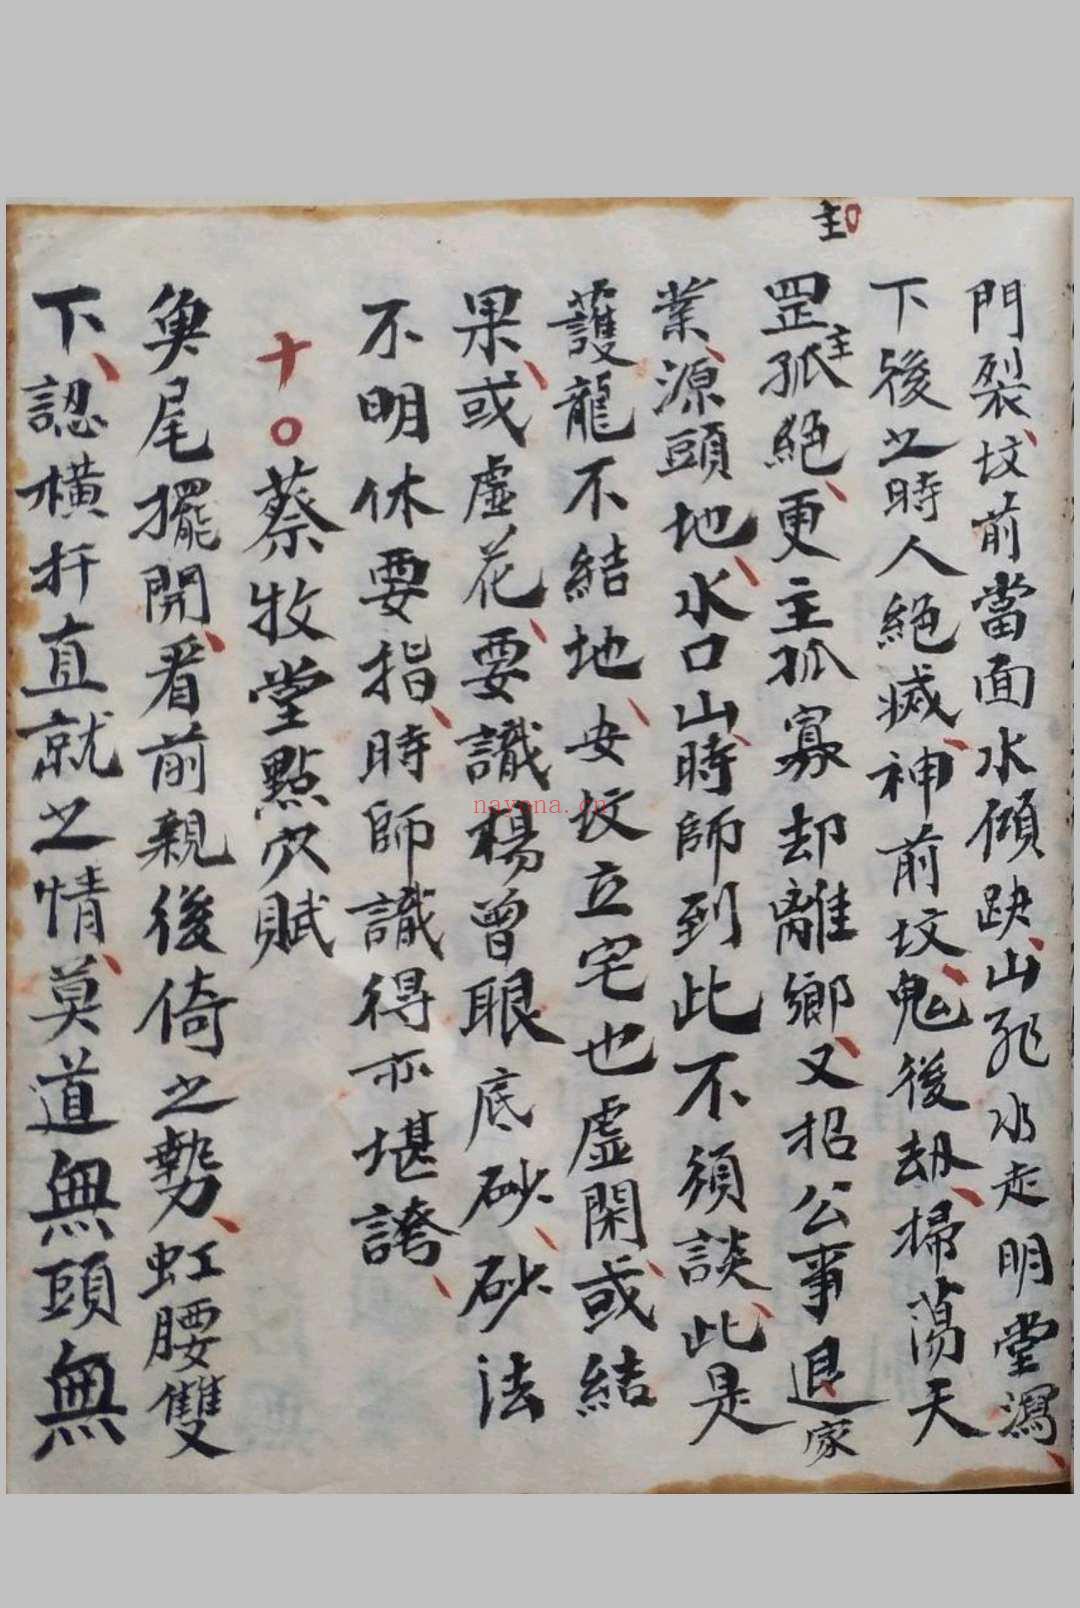 主
門裂坟前當面水傾跌山飛水走明堂瀉
下後之時人絕滅神前坟鬼後刼掃蕩天
罡主孤絕更主孤寡却離鄉又招公事退家
業源頭地水口山時師到此不須談此是
護龍不結地安坟立宅也虛閑或結
果或虛花要識楊曾眼底砂砂法
不明休要指時師識得亦堪誇
十〇蔡牧堂點穴賦
魚尾擺開看前親後倚之勢虹腰雙
下認橫扦直就之情莫道無頭無
nayona.cn